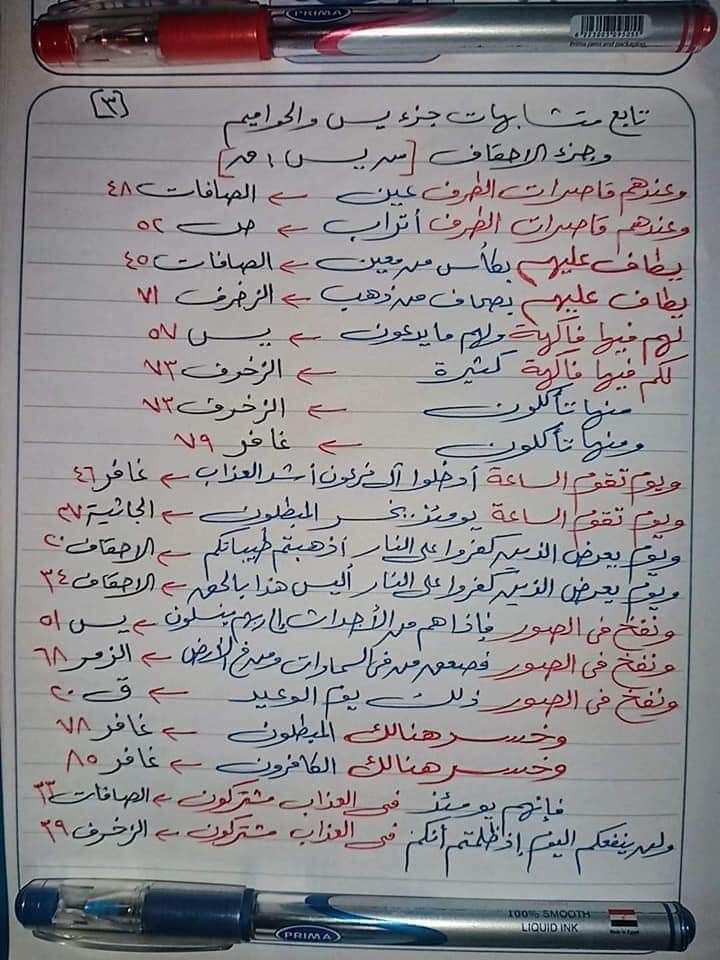 PRIMA
[٣]
تابع متشابهات جزء يس والحواميم
وجزء الاحقاف [من يس : ق]
وعندهم قاصرات الطرف عين ← الصافات ٤٨
وعندهم قاصرات الطرف أتراب ← ص ٥٢
يطاف عليهم بكأس من معين ← الصافات ٤٥
يطاف عليهم بصحاف من ذهب ← الزخرف ٧١
لهم فيها فاكهة ولهم ما يدعون ← يس ٥٧
لكم فيها فاكهة كثيرة ← الزخرف ٧٣
منها تأكلون ← الزخرف ٧٣
ومنها تأكلون ← غافر ٧٩
ويوم تقوم الساعة أدخلوا آل فرعون أشد العذاب ← غافر ٤٦
ويوم تقوم الساعة يومئذ يخسر المبطلون ← الجاثية ٢٧
ويوم يعرض الذين كفروا على النار أذهبتم طيباتكم ← الاحقاف ٢٠
ويوم يعرض الذين كفروا على النار أليس هذا بالحق ← الاحقاف ٣٤
ونفخ فى الصور فإذا هم من الأجداث إلى ربهم ينسلون ← يس ٥١
ونفخ فى الصور فصعق من فى السماوات ومن فى الأرض ← الزمر ٦٨
ونفخ فى الصور ذلك يوم الوعيد ← ق ٢٠
وخسر هنالك المبطلون ← غافر ٧٨
وخسر هنالك الكافرون ← غافر ٨٥
فإنهم يومئذ فى العذاب مشتركون ← الصافات ٣٣
ولن ينفعكم اليوم إذ ظلمتم أنكم فى العذاب مشتركون ← الزخرف ٣٩
PRIMA
100% SMOOTH
LIQUID INK
Made in Egypt